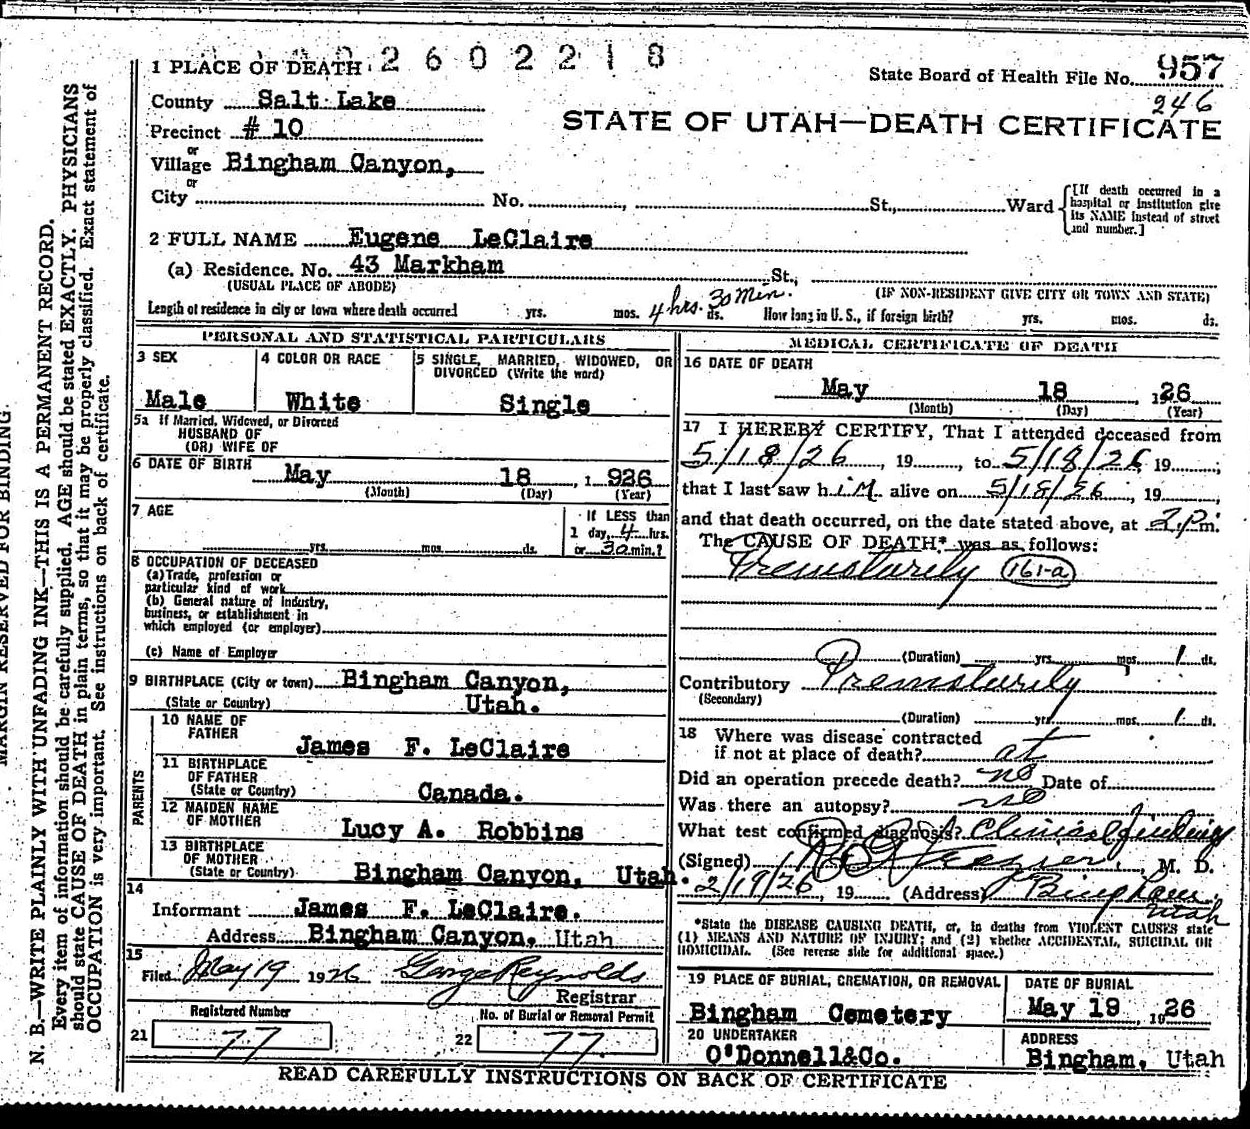 2 6 0 2 2 1 8
1 PLACE OF DEATH
State Board of Health File No. 957
246
County Salt Lake
STATE OF UTAH—DEATH CERTIFICATE
Precinct # 10
or
Village Bingham Canyon,
or
City No. , St., Ward
[If death occurred in a hospital or institution give its NAME instead of street and number.]
2 FULL NAME Eugene LeClaire
(a) Residence. No. 43 Markham St.,
(USUAL PLACE OF ABODE) (IF NON-RESIDENT GIVE CITY OR TOWN AND STATE)
Length of residence in city or town where death occurred yrs. mos. 4 hrs. 30 Min. ds. How long in U. S., if foreign birth? yrs. mos. ds.
PERSONAL AND STATISTICAL PARTICULARS
3 SEX 4 COLOR OR RACE 5 SINGLE, MARRIED, WIDOWED, OR
DIVORCED (Write the word)
Male White Single
5a If Married, Widowed, or Divorced
HUSBAND OF
(OR) WIFE OF
6 DATE OF BIRTH May 18, 1926
(Month) (Day) (Year)
7 AGE yrs. mos. ds.
If LESS than
1 day, 4 hrs.
or 30 min.?
8 OCCUPATION OF DECEASED
(a) Trade, profession or
particular kind of work
(b) General nature of industry,
business, or establishment in
which employed (or employer)
(c) Name of Employer
9 BIRTHPLACE (City or town) Bingham Canyon,
(State or Country) Utah.
PARENTS
10 NAME OF
FATHER
James F. LeClaire
11 BIRTHPLACE
OF FATHER
(State or Country) Canada.
12 MAIDEN NAME
OF MOTHER
Lucy A. Robbins
13 BIRTHPLACE
OF MOTHER
(State or Country) Bingham Canyon, Utah.
14
Informant James F. LeClaire.
Address Bingham Canyon, Utah
15
Filed May 19 1926 George Reynolds
Registrar
Registered Number No. of Burial or Removal Permit
21 77 22 77
MEDICAL CERTIFICATE OF DEATH
16 DATE OF DEATH
May 18, 1926
(Month) (Day) (Year)
17 I HEREBY CERTIFY, That I attended deceased from
5/18/26, 19 , to 5/18/26, 19 ;
that I last saw him alive on 5/18/26, 19 ,
and that death occurred, on the date stated above, at 2 P m.
The CAUSE OF DEATH* was as follows:
Prematurity 161-a
(Duration) yrs. mos. 1 ds.
Contributory Prematurity
(Secondary)
(Duration) yrs. mos. 1 ds.
18 Where was disease contracted
if not at place of death? at
Did an operation precede death? no Date of
Was there an autopsy? no
What test confirmed diagnosis? Clinical findings
(Signed) M. D.
2/19/26, 19 (Address) Bingham, Utah
*State the DISEASE CAUSING DEATH, or, in deaths from VIOLENT CAUSES state
(1) MEANS AND NATURE OF INJURY; and (2) whether ACCIDENTAL, SUICIDAL OR
HOMICIDAL. (See reverse side for additional space.)
19 PLACE OF BURIAL, CREMATION, OR REMOVAL DATE OF BURIAL
Bingham Cemetery May 19, 1926
20 UNDERTAKER ADDRESS
O'Donnell&Co. Bingham, Utah
READ CAREFULLY INSTRUCTIONS ON BACK OF CERTIFICATE
MARGIN RESERVED FOR BINDING.
N. B.—WRITE PLAINLY WITH UNFADING INK—THIS IS A PERMANENT RECORD.
Every item of information should be carefully supplied. AGE should be stated EXACTLY. PHYSICIANS
should state CAUSE OF DEATH in plain terms, so that it may be properly classified. Exact statement of
OCCUPATION is very important. See instructions on back of certificate.